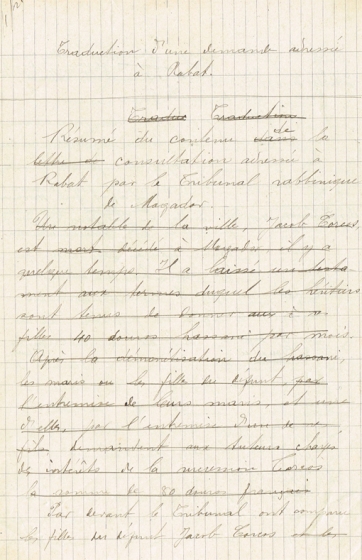 Traduction d'une demande adressé
à Rabat.
Traduc Traduction
Résumé du contenu dans de la
lettre de consultation adressé à
Rabat par le Tribunal rabbinique
de Mogador.
Un notable de la ville, Jacob Corcos,
est mort décédé à Mogador il y a
quelque temps. Il a laissé une testa
ment aux termes duquel les héritiers
sont tenus de donner à
filles 40 douros hassani par mois.
Après la démonétisation du hassani,
les maris ou les filles du défunt, par
l'entremise de leurs maris, et une
d'elles, par l'entremise d'un de ses
fils, demandent aux tuteurs chargés
des intérêts de la succession Corcos
la somme de 80 douros français
Par devant le Tribunal ont comparu
les filles du défunt Jacob Corcos et les